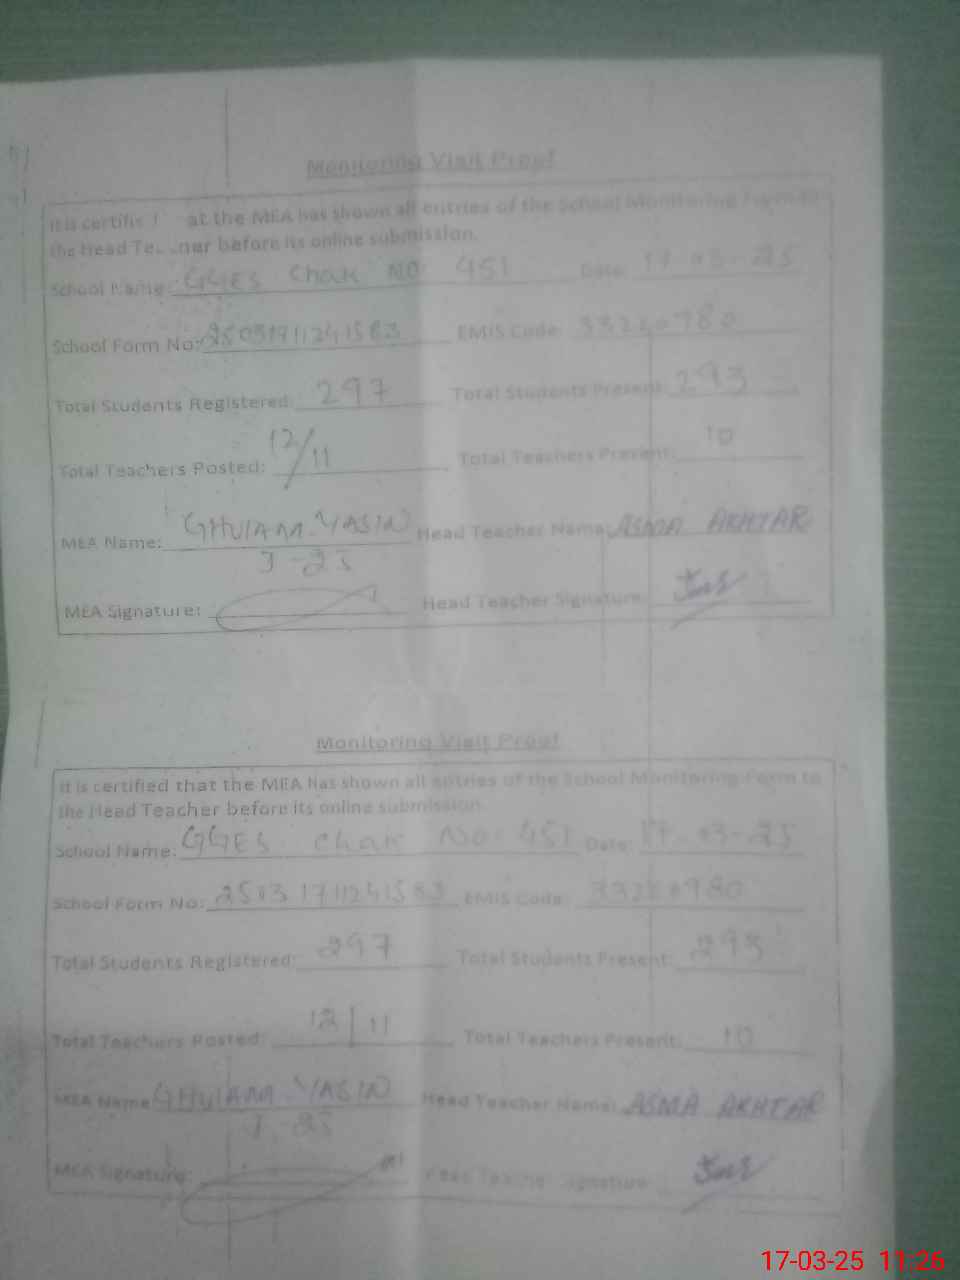 Monitoring Visit Proof
It is certifi at the MEA has shown all entries of the School Monitoring Form to
the Head Te ner before its online submission.
School Name: GGES Chak NO. 451 Date: 17-03-25
School Form No: 2503171124 1583 EMIS Code: 33240980
Total Students Registered: 297 Total Students Present: 293
Total Teachers Posted: 12/11 Total Teachers Present: 10
MEA Name: GHULAM YASIN Head Teacher Name: ASMA AKHTAR
J-25
MEA Signature: Head Teacher Signature:
Monitoring Visit Proof
It is certified that the MEA has shown all entries of the School Monitoring Form to
the Head Teacher before its online submission.
School Name: GGES Chak No. 451 Date: 17-03-25
School Form No: 2503171124 1583 EMIS Code:
Total Students Registered: 297 Total Students Present: 293
Total Teachers Posted: 12/11 Total Teachers Present: 10
MEA Name GHULAM YASIN Head Teacher Name: ASMA AKHTAR
J-25
MEA Signature: Head Teacher Signature:
17-03-25 11:26